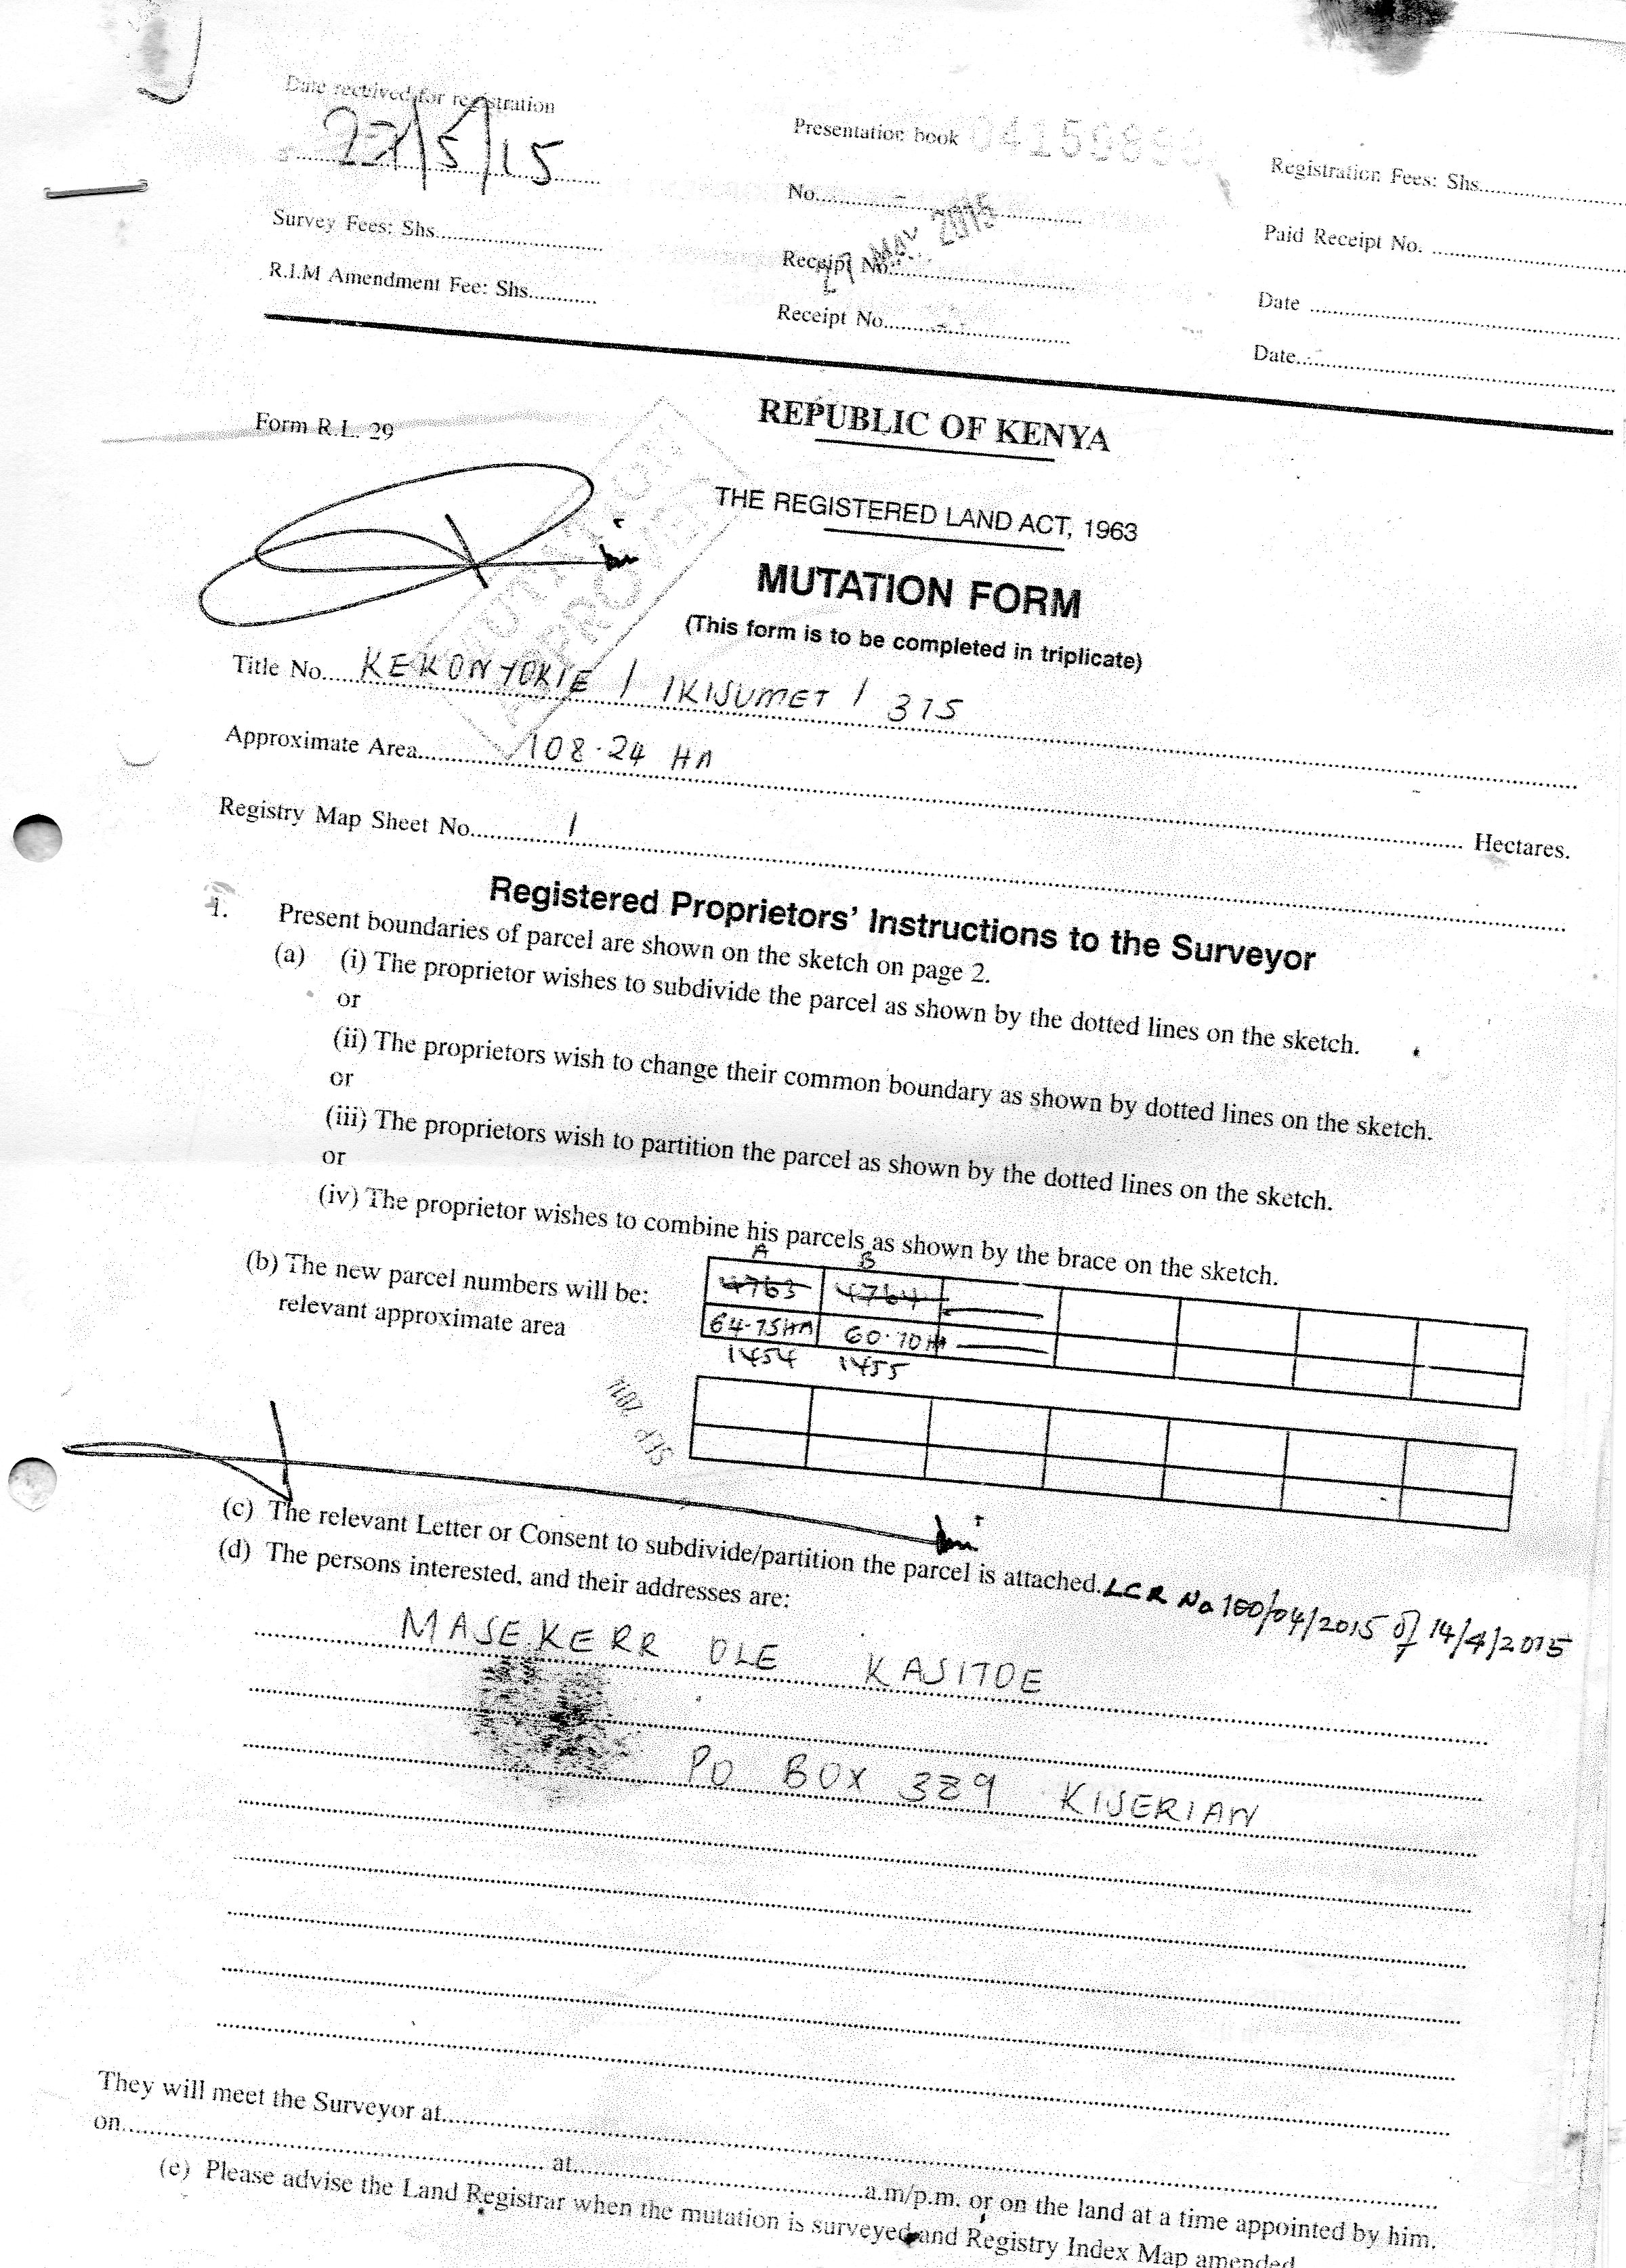 Date received for registration
22/5/15
Presentation book
Registration Fees: Shs
No
27 MAY 2015
Survey Fees: Shs
Receipt No.
Paid Receipt No.
R.I.M Amendment Fee: Shs
Receipt No
Date
Date
Form R.L. 29
REPUBLIC OF KENYA
THE REGISTERED LAND ACT, 1963
MUTATION APPROVED
MUTATION FORM
(This form is to be completed in triplicate)
Title No. KEKONYOKIE / IKISUMET / 375
Approximate Area 108.24 HA Hectares.
Registry Map Sheet No. 1
Registered Proprietors' Instructions to the Surveyor
1. Present boundaries of parcel are shown on the sketch on page 2.
(a) (i) The proprietor wishes to subdivide the parcel as shown by the dotted lines on the sketch.
or
(ii) The proprietors wish to change their common boundary as shown by dotted lines on the sketch.
or
(iii) The proprietors wish to partition the parcel as shown by the dotted lines on the sketch.
or
(iv) The proprietor wishes to combine his parcels as shown by the brace on the sketch.
A B
(b) The new parcel numbers will be: 4763 4764
relevant approximate area 64.75HA 60.70HA
1454 1455
SEP 2011
(c) The relevant Letter or Consent to subdivide/partition the parcel is attached. LCR No 100/04/2015 of 14/4/2015
(d) The persons interested, and their addresses are:
MASEKERR OLE KASITOE
PO BOX 389 KISERIAN
They will meet the Surveyor at
on at a.m/p.m. or on the land at a time appointed by him.
(e) Please advise the Land Registrar when the mutation is surveyed and Registry Index Map amended